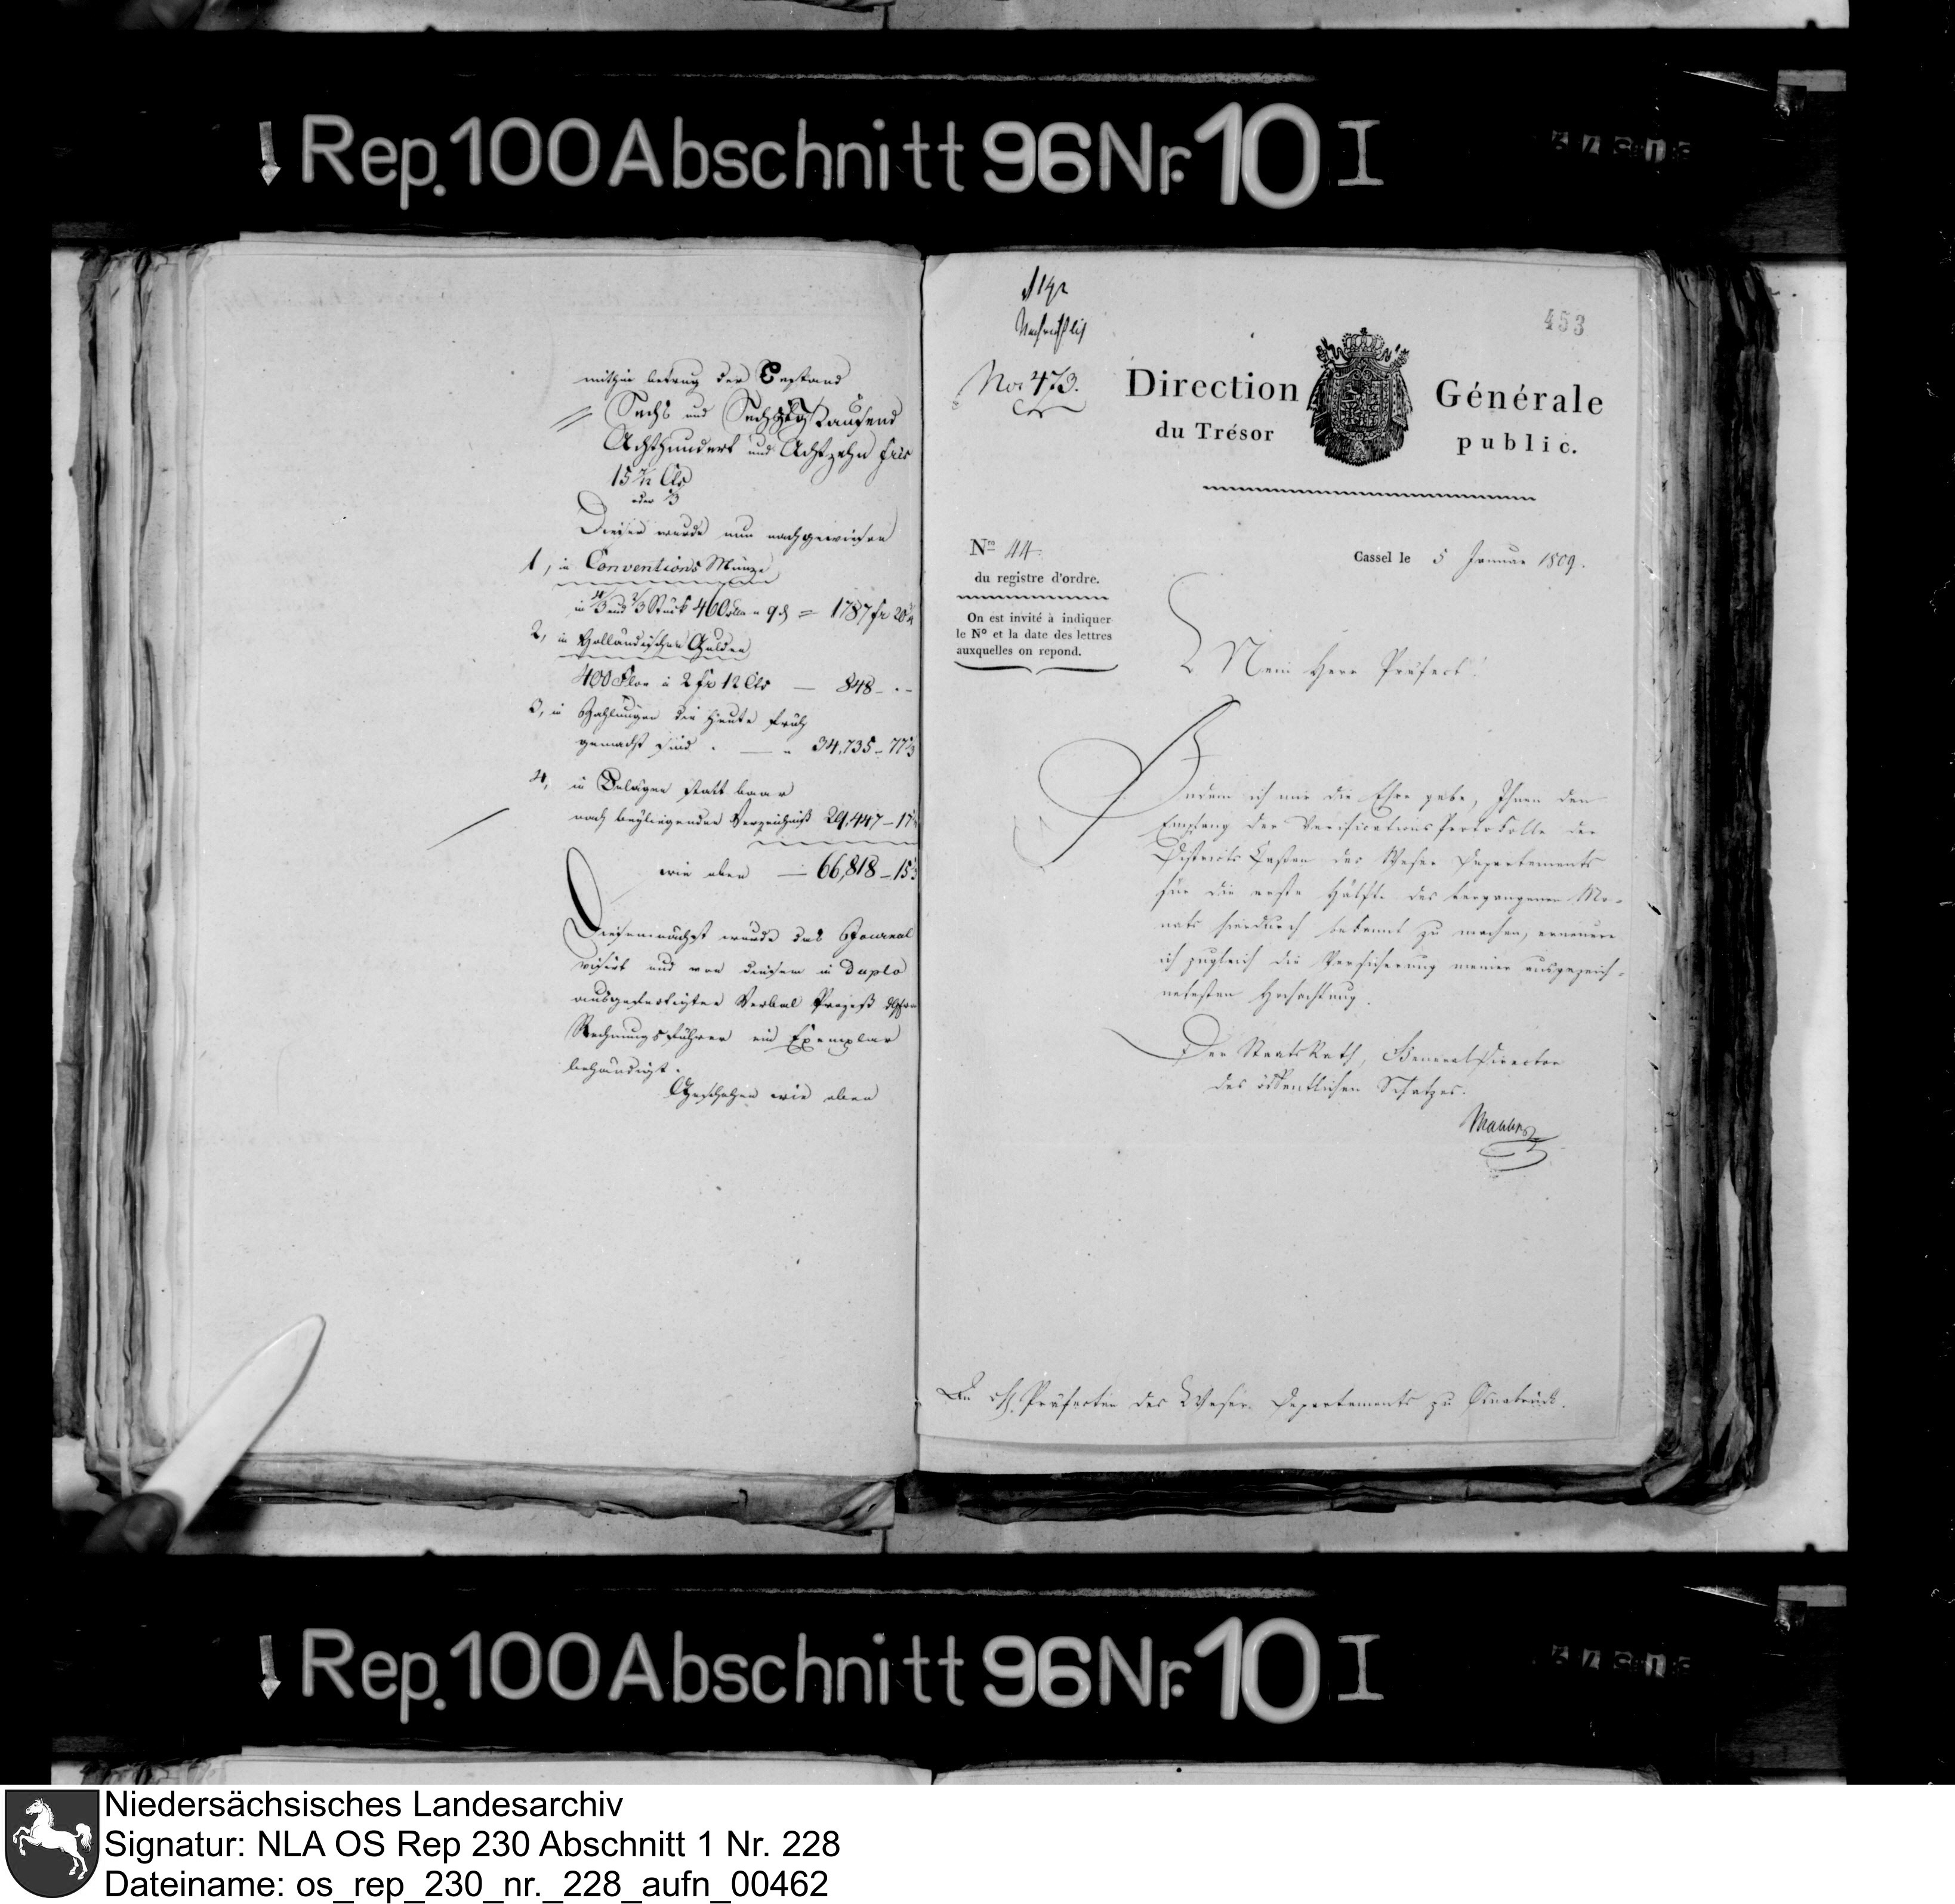 Rep. 100 Abschnitt 96 Nr. 10 I
mithin betrug der Bestand
Sechs und Sechszig Tausend
Achthundert und Achtzehn frcs
15 1/2 Cts
oder 1/3
Dieser wurde nun nachgewiesen
1, in Conventions Münze
in 1/3 und 2/3 Stück 460 = 1787 fr 20
2, in Holländischen Gulden
400 Flor à 2 fr 12 Cts — 848 - . -
3, in Zahlungen die heute früh
gemacht sind . — " 34,735 - 77 1/3
4, in Belägen statt baar
nach beyliegenden Verzeichniß 29,447 - 17
wie oben — 66,818 - 15 1/3
Diesemnächst wurde das Journal
visirt und von diesem in duplo
ausgefertigten Verbal Prozeß dem
Rechnungsführer ein Exemplar
behändigt.
Geschehen wie oben
453
Nachrichtlich
No: 473.
Direction Générale
du Trésor public.
Nro 44.
du registre d'ordre.
On est invité à indiquer
le No et la date des lettres
auxquelles on repond.
Cassel le 5 Januar 1809.
Mein Herr Präfect!
Indem ich mir die Ehre gebe, Ihnen den
Empfang der Verifications Protokolle der
Districts Cassen des Weser Departements
für die erste Hälfte des vergangenen Mo-
nats hierdurch bekannt zu machen, erneuere
ich zugleich die Versicherung meiner ausgezeich-
netesten Hochachtung.
Der StaatsRath, GeneralDirector
des öffentlichen Schatzes.
An H. Präfecten des Weser Departements zu Osnabrück.
Rep. 100 Abschnitt 96 Nr. 10 I
Niedersächsisches Landesarchiv
Signatur: NLA OS Rep 230 Abschnitt 1 Nr. 228
Dateiname: os_rep_230_nr._228_aufn_00462